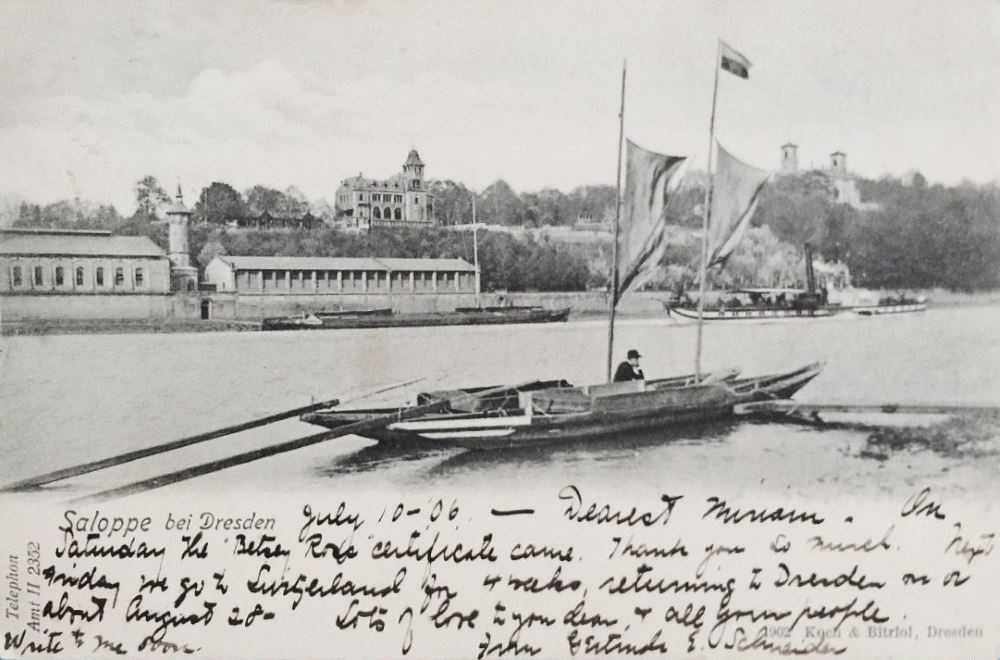 Saloppe bei Dresden
July 10-'06. — Dearest Miriam. On
Saturday the "Betsey Ross" certificate came. Thank you so much. Next
Friday we go to Switzerland for 4 weeks, returning to Dresden on or
about August 28- Lots of love to you dear, & all your people.
Write to me soon. From Gertrude E. Schneider
Telephon
Amt II 2352
1902 Koch & Bitriol, Dresden